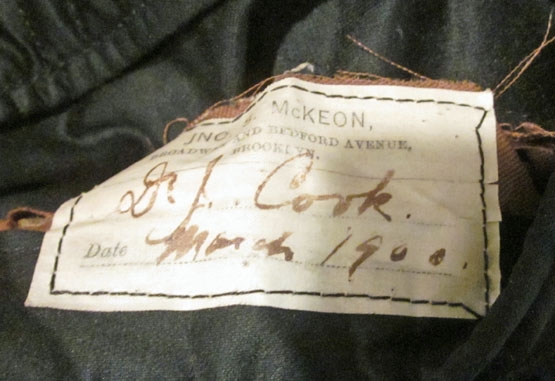 JNO McKEON,
BROADWAY AND BEDFORD AVENUE,
BROOKLYN.
Dr J. Cook.
Date March 1900.